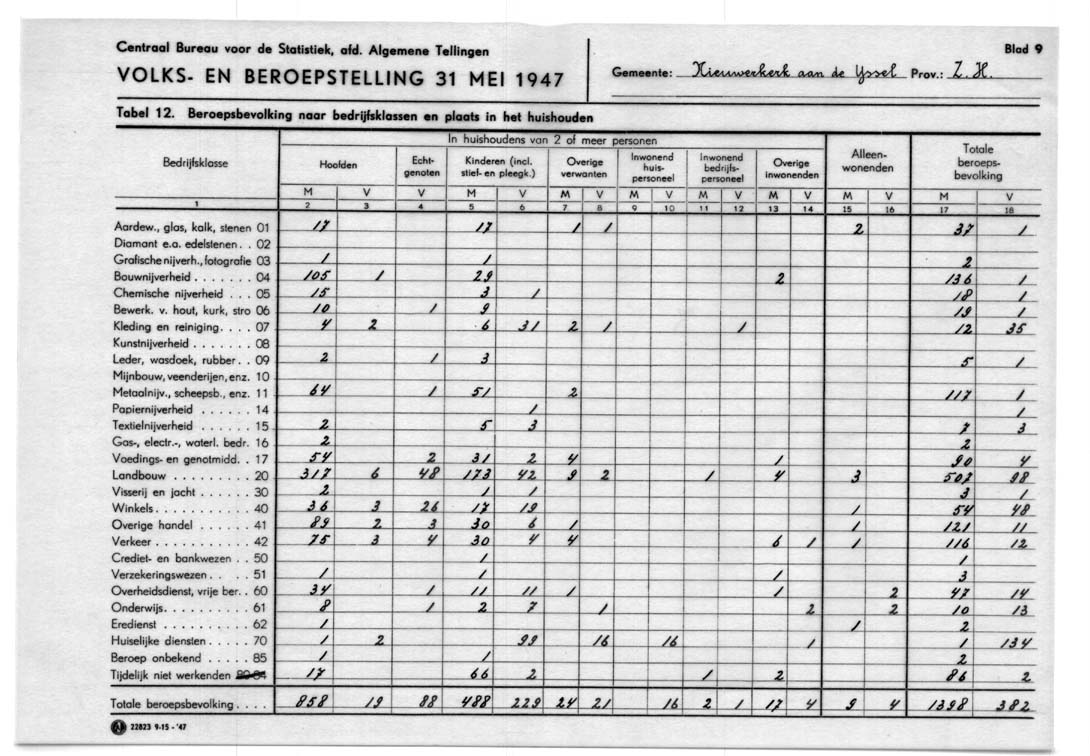 Centraal Bureau voor de Statistiek, afd. Algemene Tellingen
Blad 9
VOLKS- EN BEROEPSTELLING 31 MEI 1947
Gemeente: Nieuwerkerk aan de Yssel Prov.: Z. H.
Tabel 12. Beroepsbevolking naar bedrijfsklassen en plaats in het huishouden
In huishoudens van 2 of meer personen
Bedrijfsklasse Hoofden Echtgenoten Kinderen (incl. stief- en pleegk.) Overige verwanten Inwonend huispersoneel Inwonend bedrijfspersoneel Overige inwonenden Alleenwonenden Totale beroepsbevolking
M V V M V M V M V M V M V M V M V
1 2 3 4 5 6 7 8 9 10 11 12 13 14 15 16 17 18
Aardew., glas, kalk, stenen 01 17 17 1 1 2 37 1
Diamant e.a. edelstenen . . 02
Grafische nijverh., fotografie 03 1 1 2
Bouwnijverheid . . . . . . . 04 105 1 29 2 136 1
Chemische nijverheid . . . 05 15 3 1 18 1
Bewerk. v. hout, kurk, stro 06 10 1 9 19 1
Kleding en reiniging. . . . 07 4 2 6 31 2 1 1 12 35
Kunstnijverheid . . . . . . . 08
Leder, wasdoek, rubber. . 09 2 1 3 5 1
Mijnbouw, veenderijen, enz. 10
Metaalnijv., scheepsb., enz. 11 64 1 51 2 117 1
Papiernijverheid . . . . . . 14 1 1
Textielnijverheid . . . . . . 15 2 5 3 7 3
Gas-, electr.-, waterl. bedr. 16 2 2
Voedings- en genotmidd. . 17 54 2 31 2 4 1 90 4
Landbouw . . . . . . . . . . 20 317 6 48 173 42 9 2 1 4 3 507 98
Visserij en jacht . . . . . . 30 2 1 1 3 1
Winkels . . . . . . . . . . . 40 36 3 26 17 19 1 54 48
Overige handel . . . . . . . 41 89 2 3 30 6 1 1 121 11
Verkeer . . . . . . . . . . . 42 75 3 4 30 4 4 6 1 1 116 12
Crediet- en bankwezen . . 50 1 1
Verzekeringswezen . . . . 51 1 1 1 3
Overheidsdienst, vrije ber. . 60 34 1 11 11 1 1 2 47 14
Onderwijs. . . . . . . . . . . 61 8 1 2 7 1 2 2 10 13
Eredienst . . . . . . . . . . 62 1 1 2
Huiselijke diensten . . . . . 70 1 2 99 16 16 1 1 134
Beroep onbekend . . . . . 85 1 1 2
Tijdelijk niet werkenden 17 66 2 1 2 86 2
Totale beroepsbevolking. . . . 858 19 88 488 229 24 21 16 2 1 17 4 9 4 1398 382
22823 9-15 - '47